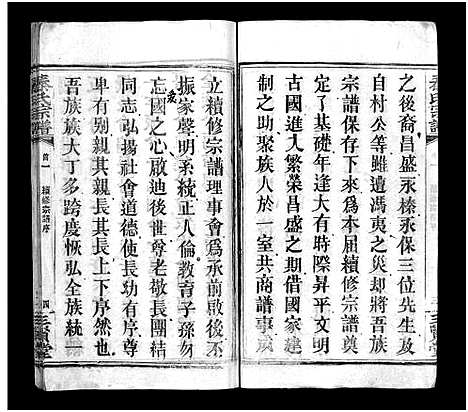 之後裔昌盛永榛永保三位先生及
自村公等雖遭馮夷之災却將吾族
宗譜保存下來爲本屆續修宗譜奠
定了基礎年逢大有時際昇平文明
古國進入繁榮昌盛之期借國家建
制之助聚族人於一室共商譜事成
立續修宗譜理事會爲承前啟後重
振家聲明系統正人倫教育子孫勿
忘國之衷心啟迪後世尊老敬長團結
同志弘揚社會道德使長幼有序尊
卑有別親其親長其長上下序然也
吾族族大丁多跨度恢弘全族統一
秦氏宗譜
首一
續修宗譜序
四
三賢堂